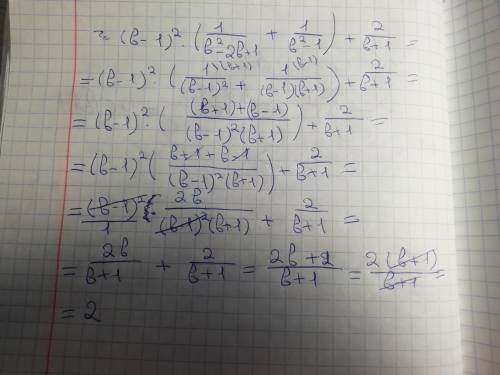 ~ (b-1)² · (1/(b²-2b+1) + 1/(b²-1)) + 2/(b+1) =
= (b-1)² · (1^{\(b+1)}/(b-1)² + 1^{\(b-1)}/((b-1)(b+1))) + 2/(b+1) =
= (b-1)² · (((b+1)+(b-1))/((b-1)²(b+1))) + 2/(b+1) =
= (b-1)² ((b+1+b-1)/((b-1)²(b+1))) + 2/(b+1) =
= (b-1)²/1 · 2b/((b-1)²(b+1)) + 2/(b+1) =
= 2b/(b+1) + 2/(b+1) = (2b+2)/(b+1) = 2(b+1)/(b+1) =
= 2